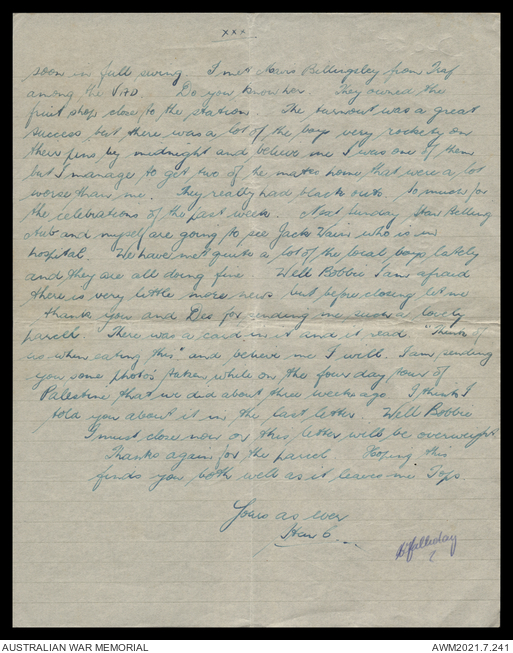 xxx
soon in full swing. I met Noris Bellingeley from Traf
among the VAD. Do you know her. They owned the
fruit shop close to the station. The turnout was a great
success but there was a lot of the boys very rockety on
their pins by midnight and believe me I was one of them
but I manage to get two of the mates home that were a lot
worse than me. They really had black outs. So much for
the celebrations of the past week. Next Sunday Stan
and myself are going to see Jack who is in
hospital. We have met quite a lot of the local boys lately
and they are all doing fine. Well Bobbie I am afraid
there is very little more news but before closing let me
thank you and Des for sending me such a lovely
parcel. There was a card in it and it read "Think of
us when eating this" and believe me I will. I am sending
you some photo's taken while on the four day tour of
Palestine that we did about three weeks ago. I think I
told you about it in the last letter. Well Bobbie
I must close now or this letter will be overweight.
Thanks again for the parcel. Hoping this
finds you both well as it leaves me Tops.
Yours as ever
Stan 6.
Halliday
AUSTRALIAN WAR MEMORIAL
AWM2021.7.241